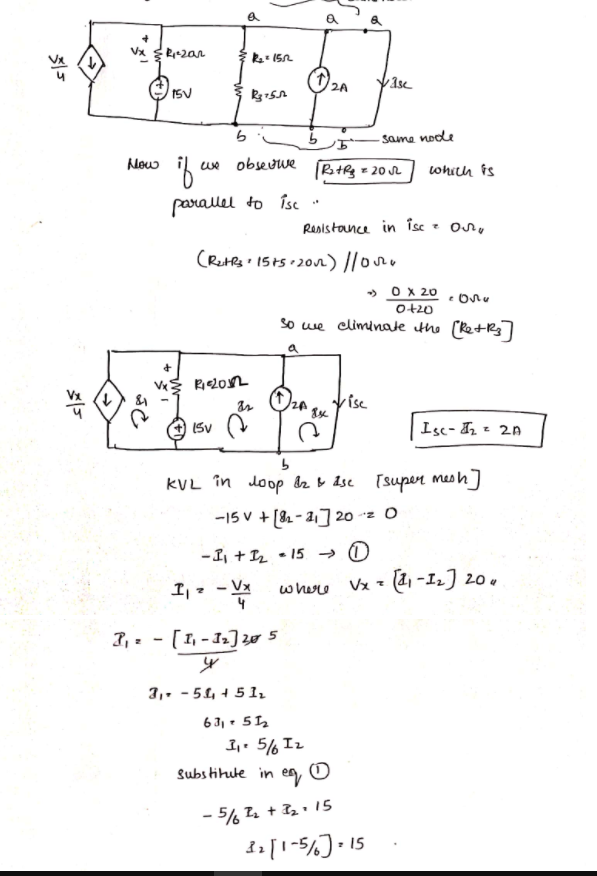 a a a
+
Vx R1=20Ω R2=15Ω
-
Vx/4 ↓ 15V R3=5Ω ↑ 2A Isc
b b b same node
Now if we observe [R2+R3 = 20Ω] which is
parallel to isc
Resistance in isc = 0Ω
(R2+R3 = 15+5=20Ω) // 0Ω
⇒ 0 x 20 / 0+20 = 0Ω
so we eliminate the [R2+R3]
a
+
Vx R1=20Ω
-
Vx/4 ↓ I1 15V I2 ↑ 2A Isc isc
Isc - I2 = 2A
b
KVL in loop I2 & Isc [super mesh]
-15V + [I2 - I1] 20 = 0
-I1 + I2 = 15 → ①
I1 = - Vx/4 where Vx = [I1 - I2] 20
I1 = - [I1 - I2] 20 5 / 4
I1 = -5I1 + 5I2
6I1 = 5I2
I1 = 5/6 I2
substitute in eq ①
- 5/6 I2 + I2 = 15
I2 [1 - 5/6] = 15